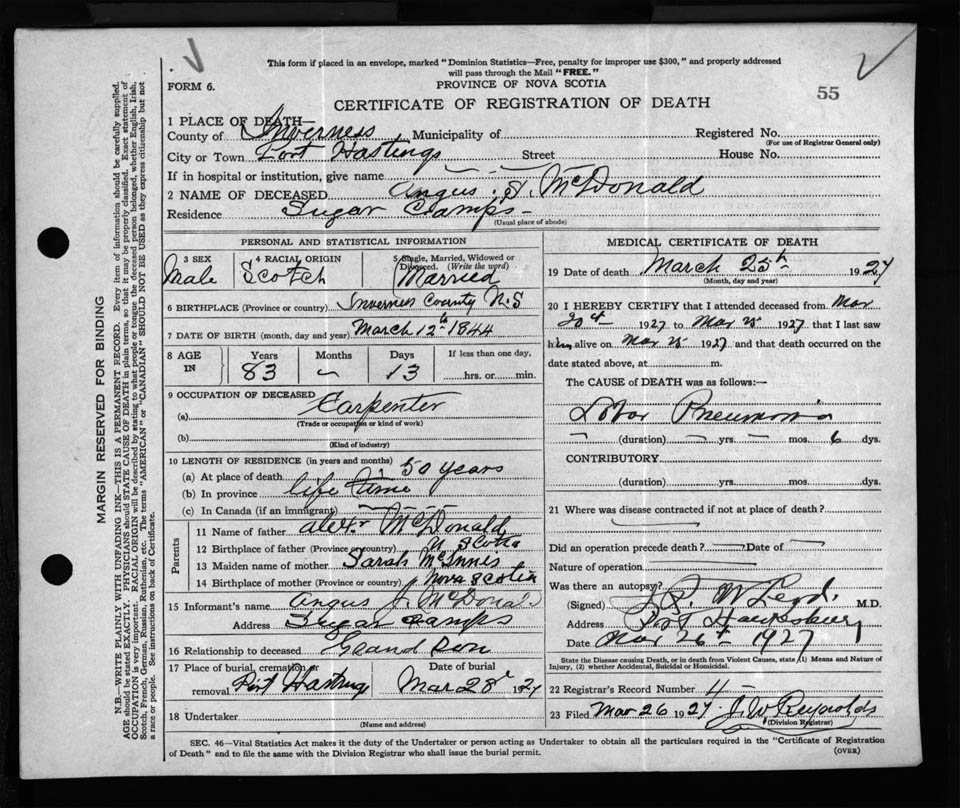 This form if placed in an envelope, marked "Dominion Statistics—Free, penalty for improper use $300," and properly addressed
will pass through the Mail "FREE."
FORM 6.
PROVINCE OF NOVA SCOTIA
55
CERTIFICATE OF REGISTRATION OF DEATH
1 PLACE OF DEATH—
County of Inverness Municipality of Registered No.
(For use of Registrar General only)
City or Town Port Hastings Street House No.
If in hospital or institution, give name
2 NAME OF DECEASED Angus McDonald
Residence Sugar Camps
(Usual place of abode)
PERSONAL AND STATISTICAL INFORMATION
3 SEX 4 RACIAL ORIGIN 5 Single, Married, Widowed or
Divorced. (Write the word)
Male Scotch Married
6 BIRTHPLACE (Province or country) Inverness County N.S
7 DATE OF BIRTH (month, day and year) March 12th 1844
8 AGE IN Years Months Days If less than one day,
83 – 13 hrs. or min.
9 OCCUPATION OF DECEASED
(a) Carpenter
(Trade or occupation or kind of work)
(b)
(Kind of industry)
10 LENGTH OF RESIDENCE (in years and months)
(a) At place of death 50 years
(b) In province life time
(c) In Canada (if an immigrant)
Parents
11 Name of father Alexr McDonald
12 Birthplace of father (Province or country) N Scotia
13 Maiden name of mother Sarah McInnis
14 Birthplace of mother (Province or country) Nova Scotia
15 Informant's name Angus J. McDonald
Address Sugar Camps
16 Relationship to deceased Grand Son
17 Place of burial, cremation or
removal Port Hastings
Date of burial
Mar 28 1927
18 Undertaker
(Name and address)
MEDICAL CERTIFICATE OF DEATH
19 Date of death March 25th 1927
(Month, day and year)
20 I HEREBY CERTIFY that I attended deceased from Mar
20th 1927 to Mar 25 1927 that I last saw
him alive on Mar 25 1927 and that death occurred on the
date stated above, at m.
The CAUSE OF DEATH was as follows:—
Lobar Pneumonia
(duration) yrs. mos. 6 dys.
CONTRIBUTORY
(duration) yrs. mos. dys.
21 Where was disease contracted if not at place of death?
Did an operation precede death? Date of
Nature of operation
Was there an autopsy?
(Signed) M.D.
Address Port Hawkesbury
Date Mar 26th 1927
State the Disease causing Death, or in death from Violent Causes, state (1) Means and Nature of
Injury, (2) whether Accidental, Suicidal or Homicidal.
22 Registrar's Record Number 4
23 Filed Mar 26 1927 J. W. Reynolds
(Division Registrar)
SEC. 46—Vital Statistics Act makes it the duty of the Undertaker or person acting as Undertaker to obtain all the particulars required in the "Certificate of Registration
of Death" and to file the same with the Division Registrar who shall issue the burial permit.
(OVER)
MARGIN RESERVED FOR BINDING
N.B.—WRITE PLAINLY WITH UNFADING INK—THIS IS A PERMANENT RECORD. Every item of information should be carefully supplied.
AGE should be stated EXACTLY. PHYSICIANS should STATE CAUSE OF DEATH in plain terms, so that it may be properly classified. Exact statement of
OCCUPATION is very important. RACIAL ORIGIN will be described by stating to what people or tongue the deceased person belonged, whether English, Irish,
Scotch, French, German, Russian, Ruthenian, etc. The terms "AMERICAN" or "CANADIAN" SHOULD NOT BE USED as they express citizenship but not
a race or people. See instructions on back of Certificate.